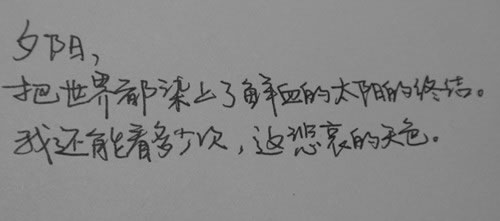 夕阳，
把世界都染上了鲜血的太阳的终结。
我还能看多少次，这悲哀的天色。